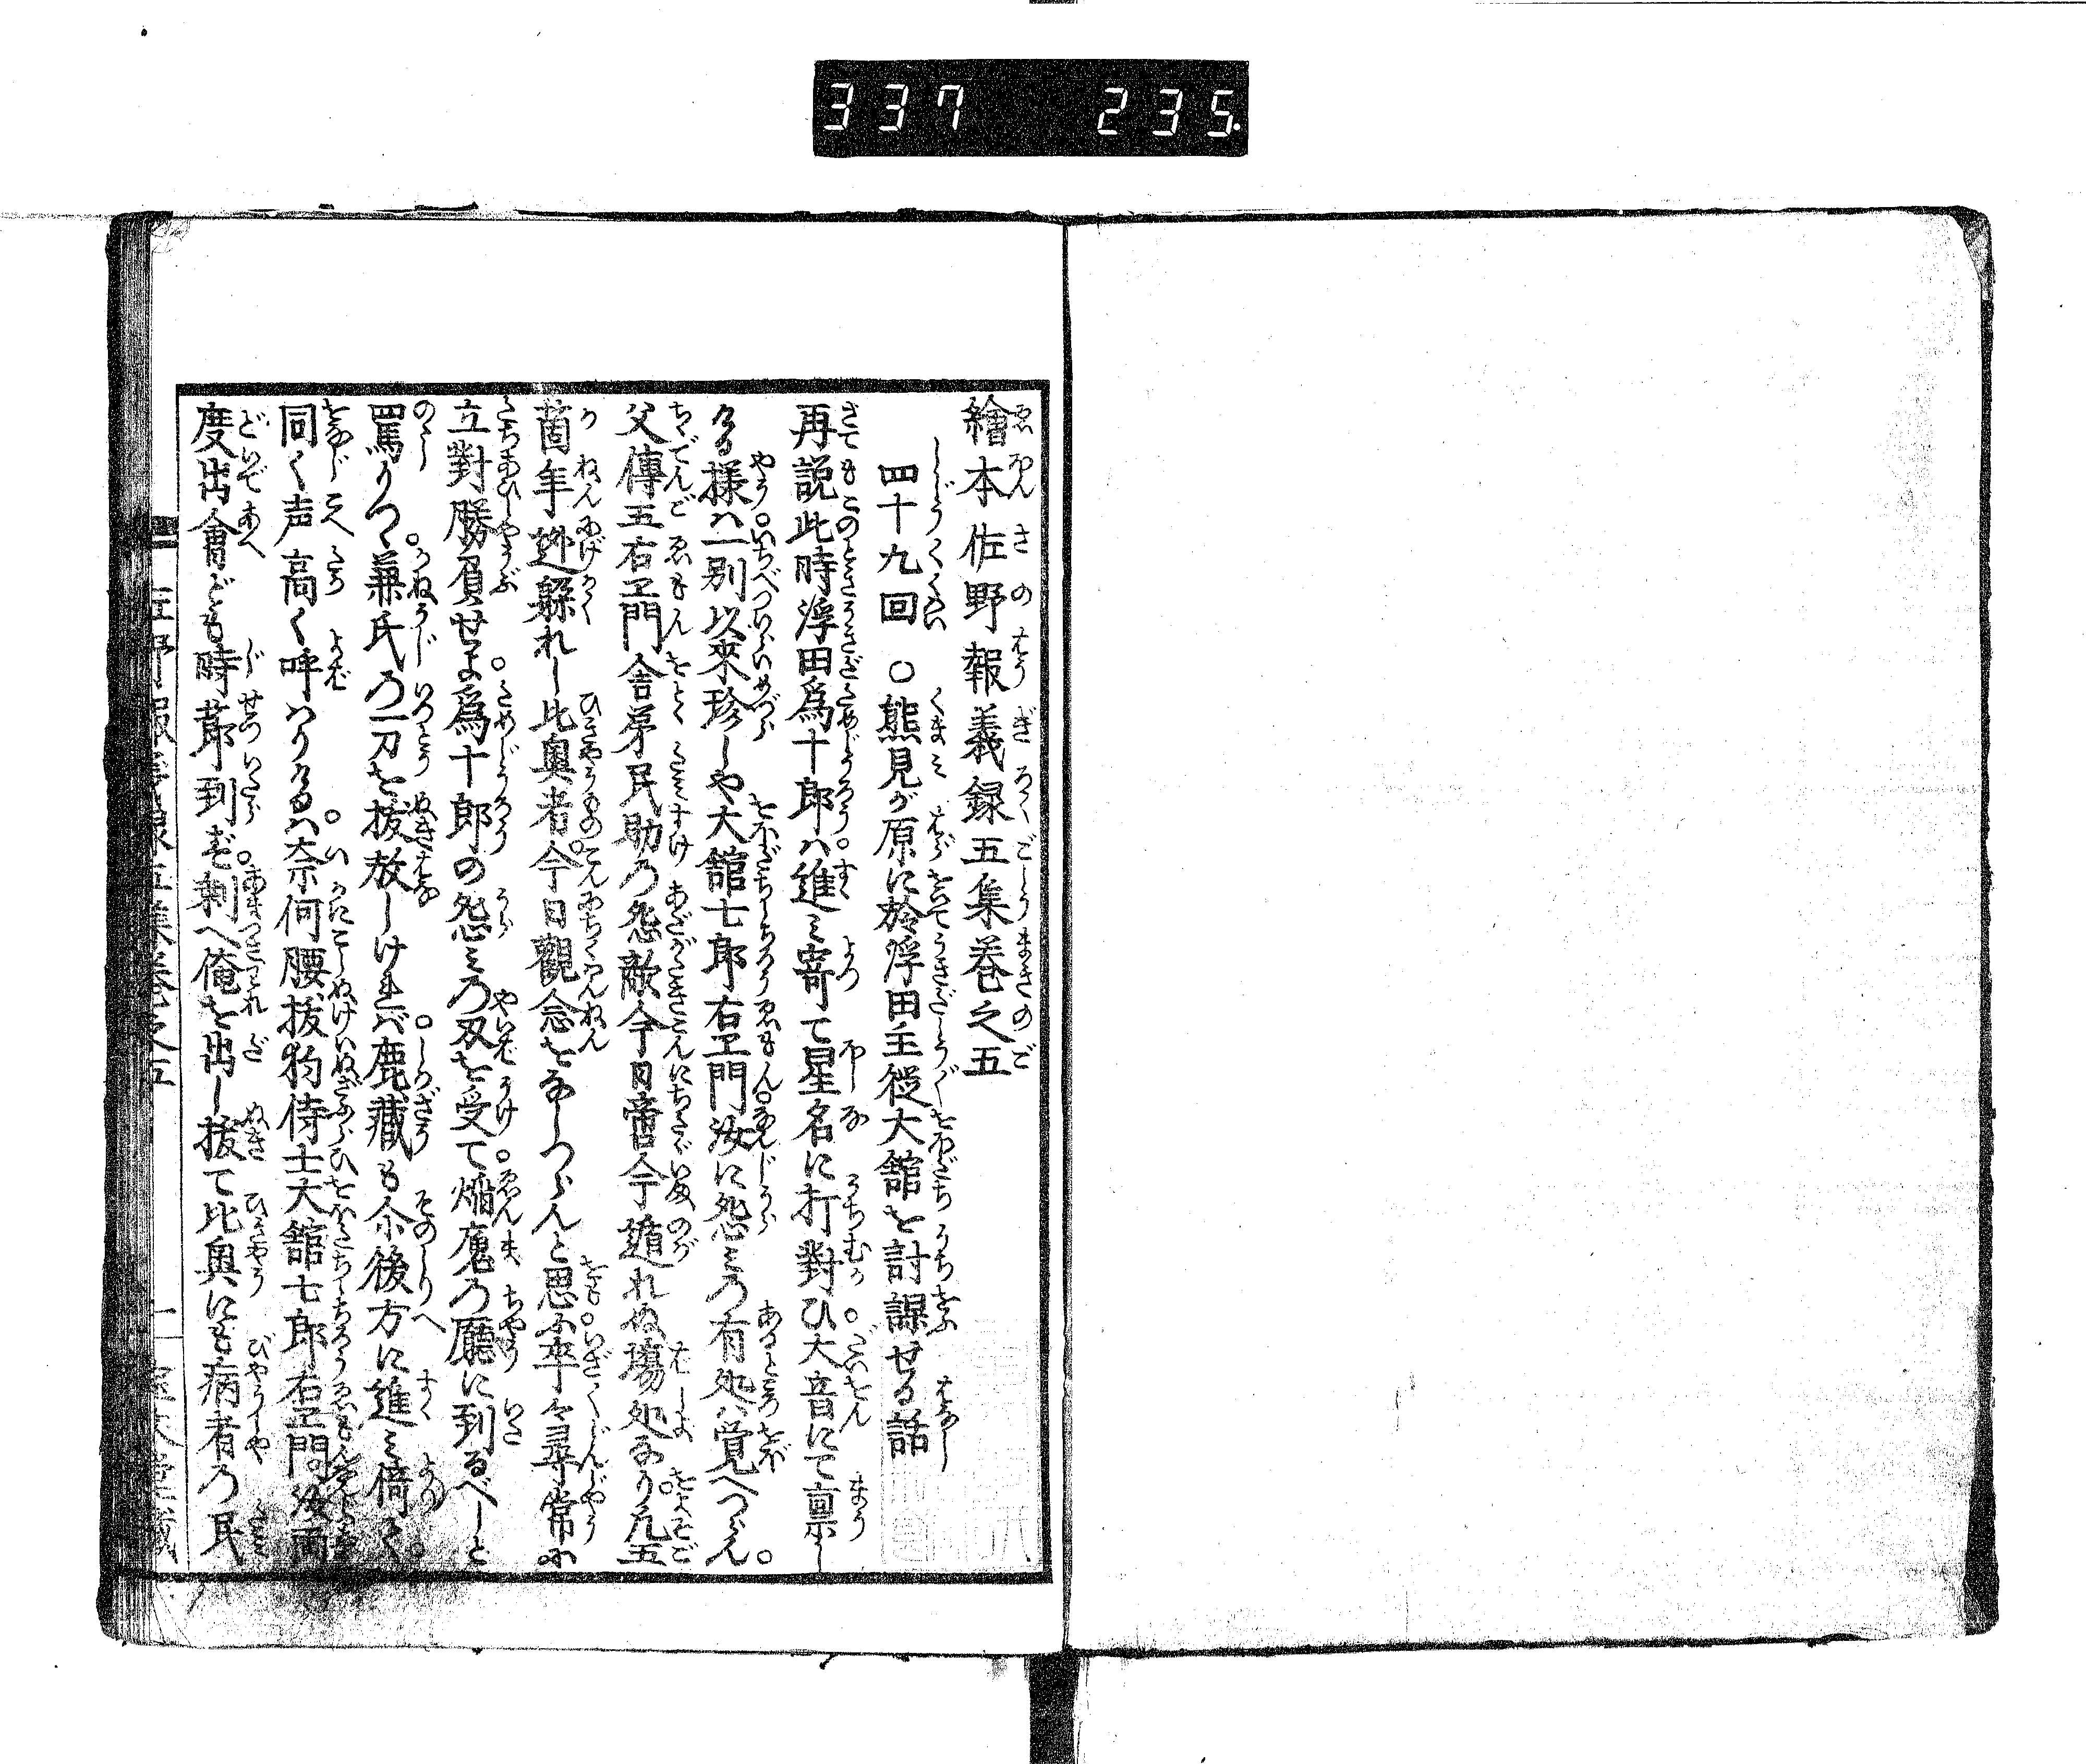 337 235
繪本佐野報義録五集巻之五
四十九回 ○熊見が原に於浮田主従大舘を討課せる話
再説此時浮田爲十郎ハ進ミ寄て星名に打對ひ大音にて禀し
ける様ハ一別以来珍しや大舘七郎右エ門汝に怨ミの有処ハ覚へつらん。
父傳五右エ門舎弟民助の怨敵今日啻今遁れぬ塲処なり凡五
箇年迯躱れし比興者。今日觀念をなしつらんと思ふ卒々尋常に
立對勝負せよ爲十郎の怨ミの刄を受て焔魔の廳に到るべしと
罵りつゝ兼氏の一刀を抜放しければ鹿藏も尒後方に進ミ倚て。
同く声高く呼ハりけるハ奈何腰抜狗侍士大舘七郎右エ門。汝両
度出會ども時莭到ず剰へ俺を出し抜て比興にも病者の民